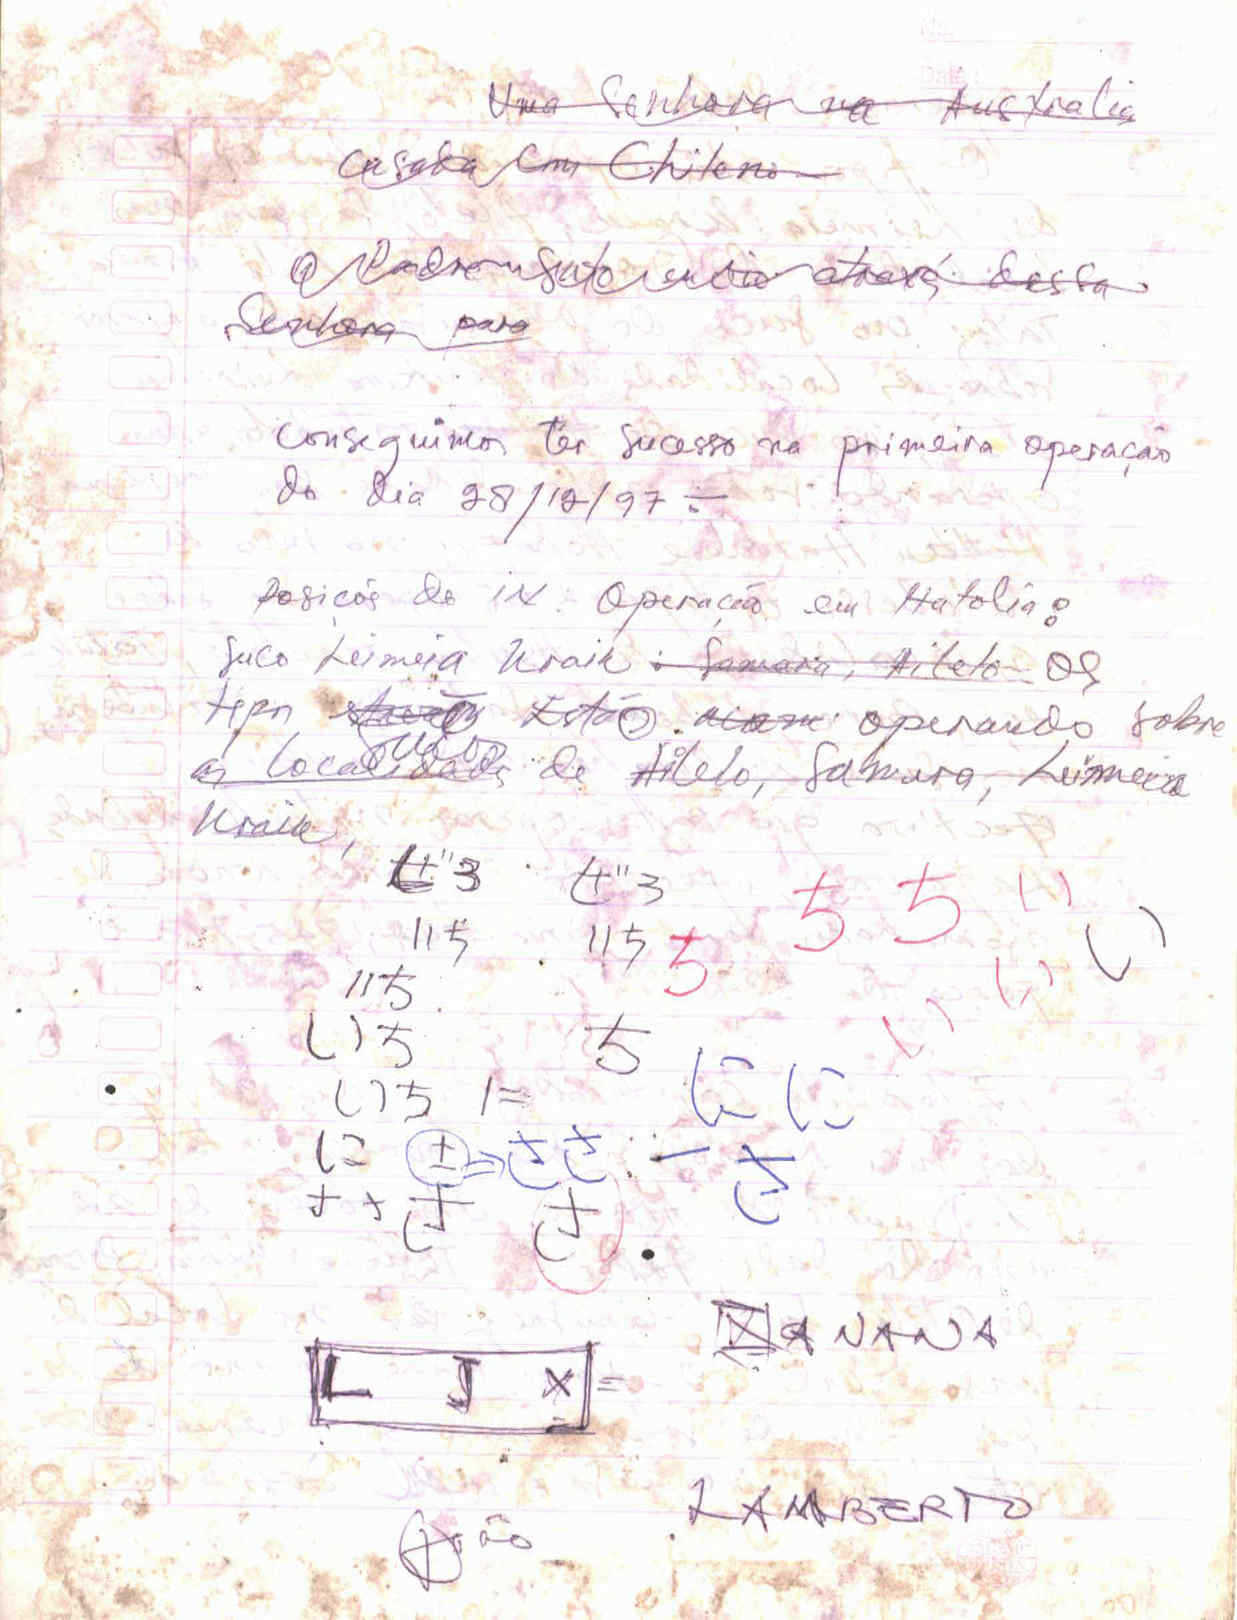 Uma Senhora na Australia
casada com Chileno
O Padre
Senhora para
conseguimos ter sucesso na primeira operação
do dia 28/12/97
Posições do IX. Operação em Hatolia:
Suco Leimeia Kraik : Samara, Aitelo OS
tipn Estão operando sobre
Sucos
as localidads de Aitelo, Samara, Leimeia
Kraik,
ぜろ ぜろ ち ち い い
いち いち ち い
いち い
いち ち
いち に に に
に さ さ さ
さ さ
ANANA
L J X =
LAMBERTO
João